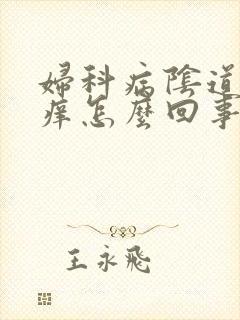 婦科病陰道
痒怎麼回事
王永飛